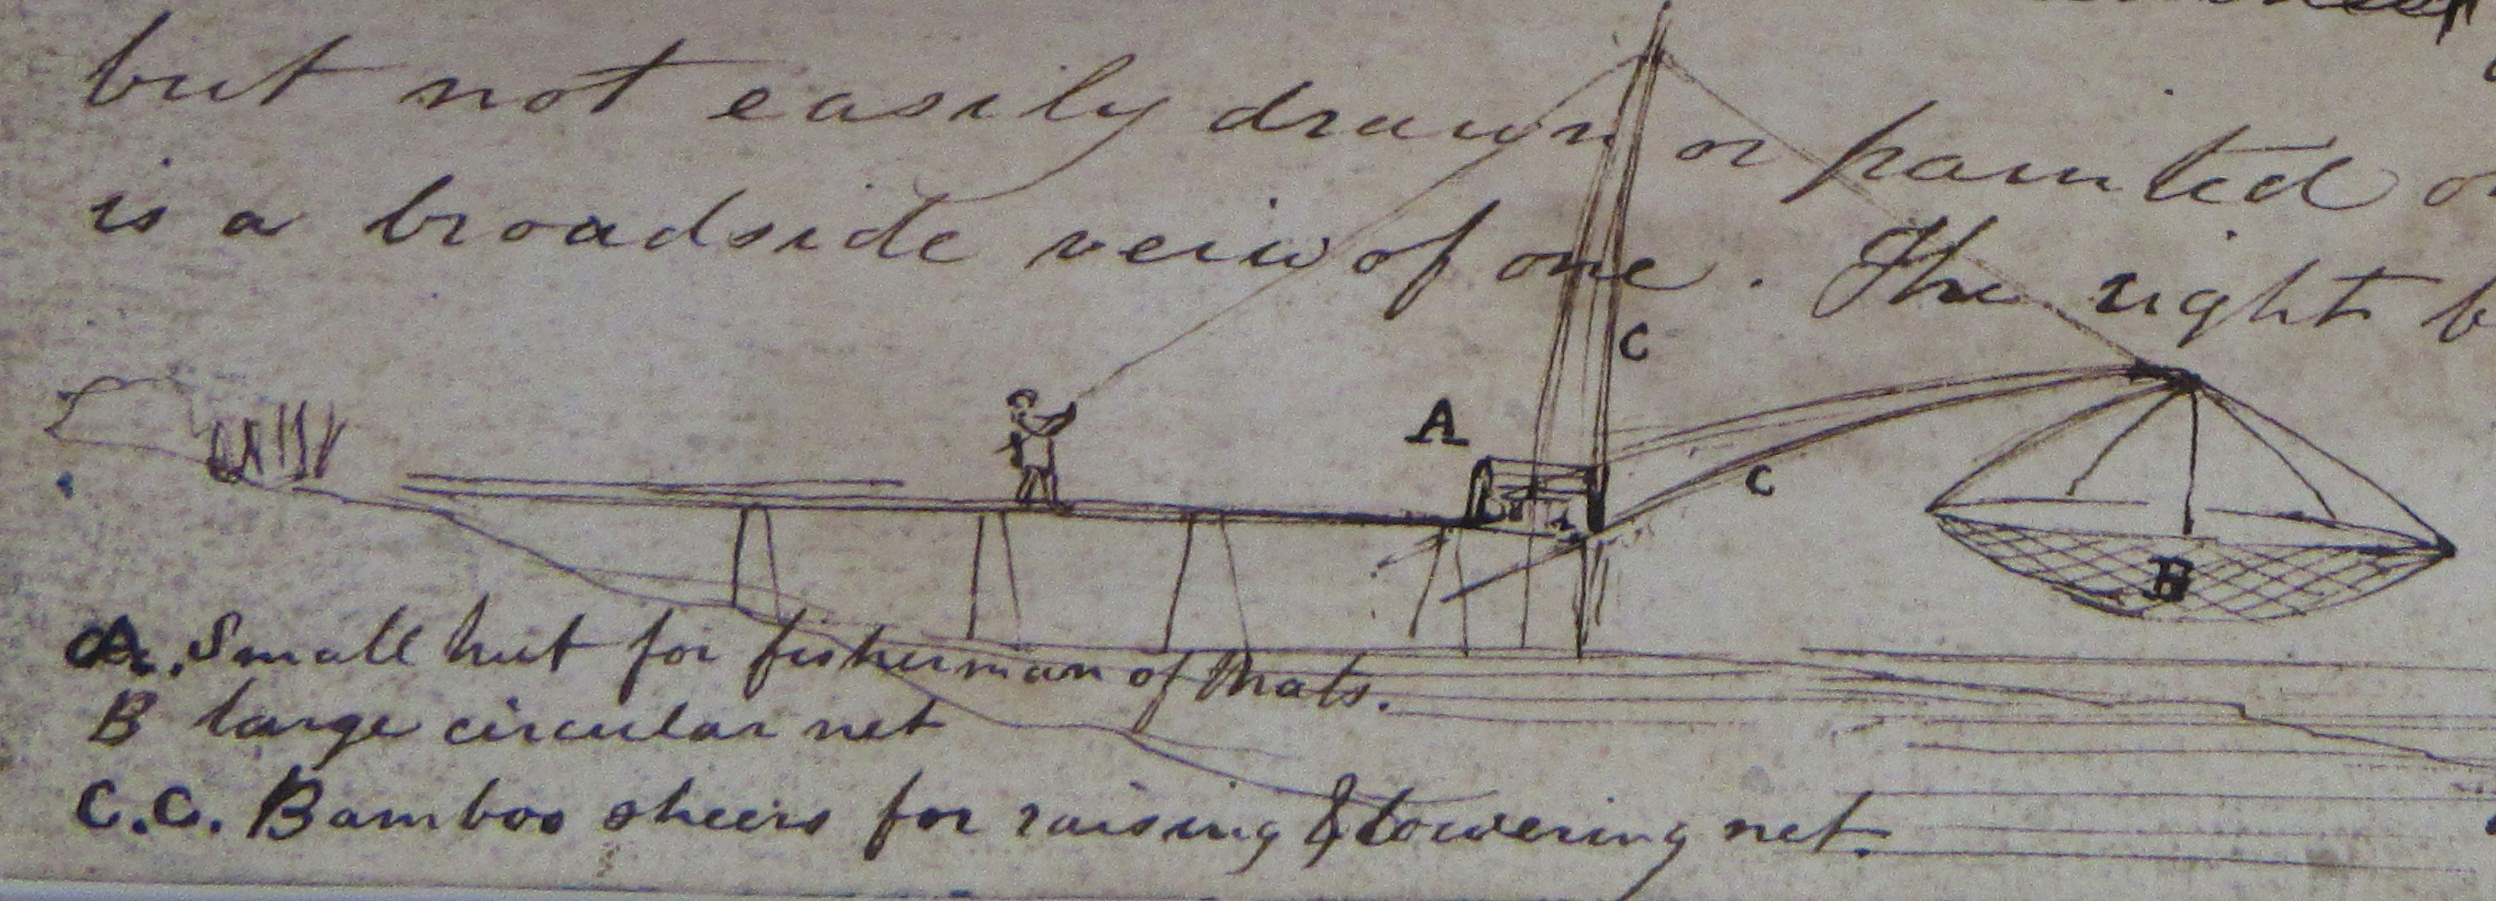 but not easily drawn or painted
is a broadside veiw of one. The right
C
A
C
B
A. Small hut for fisherman of Mats.
B large circular net
C.C. Bamboo sheers for raising & lowering net.